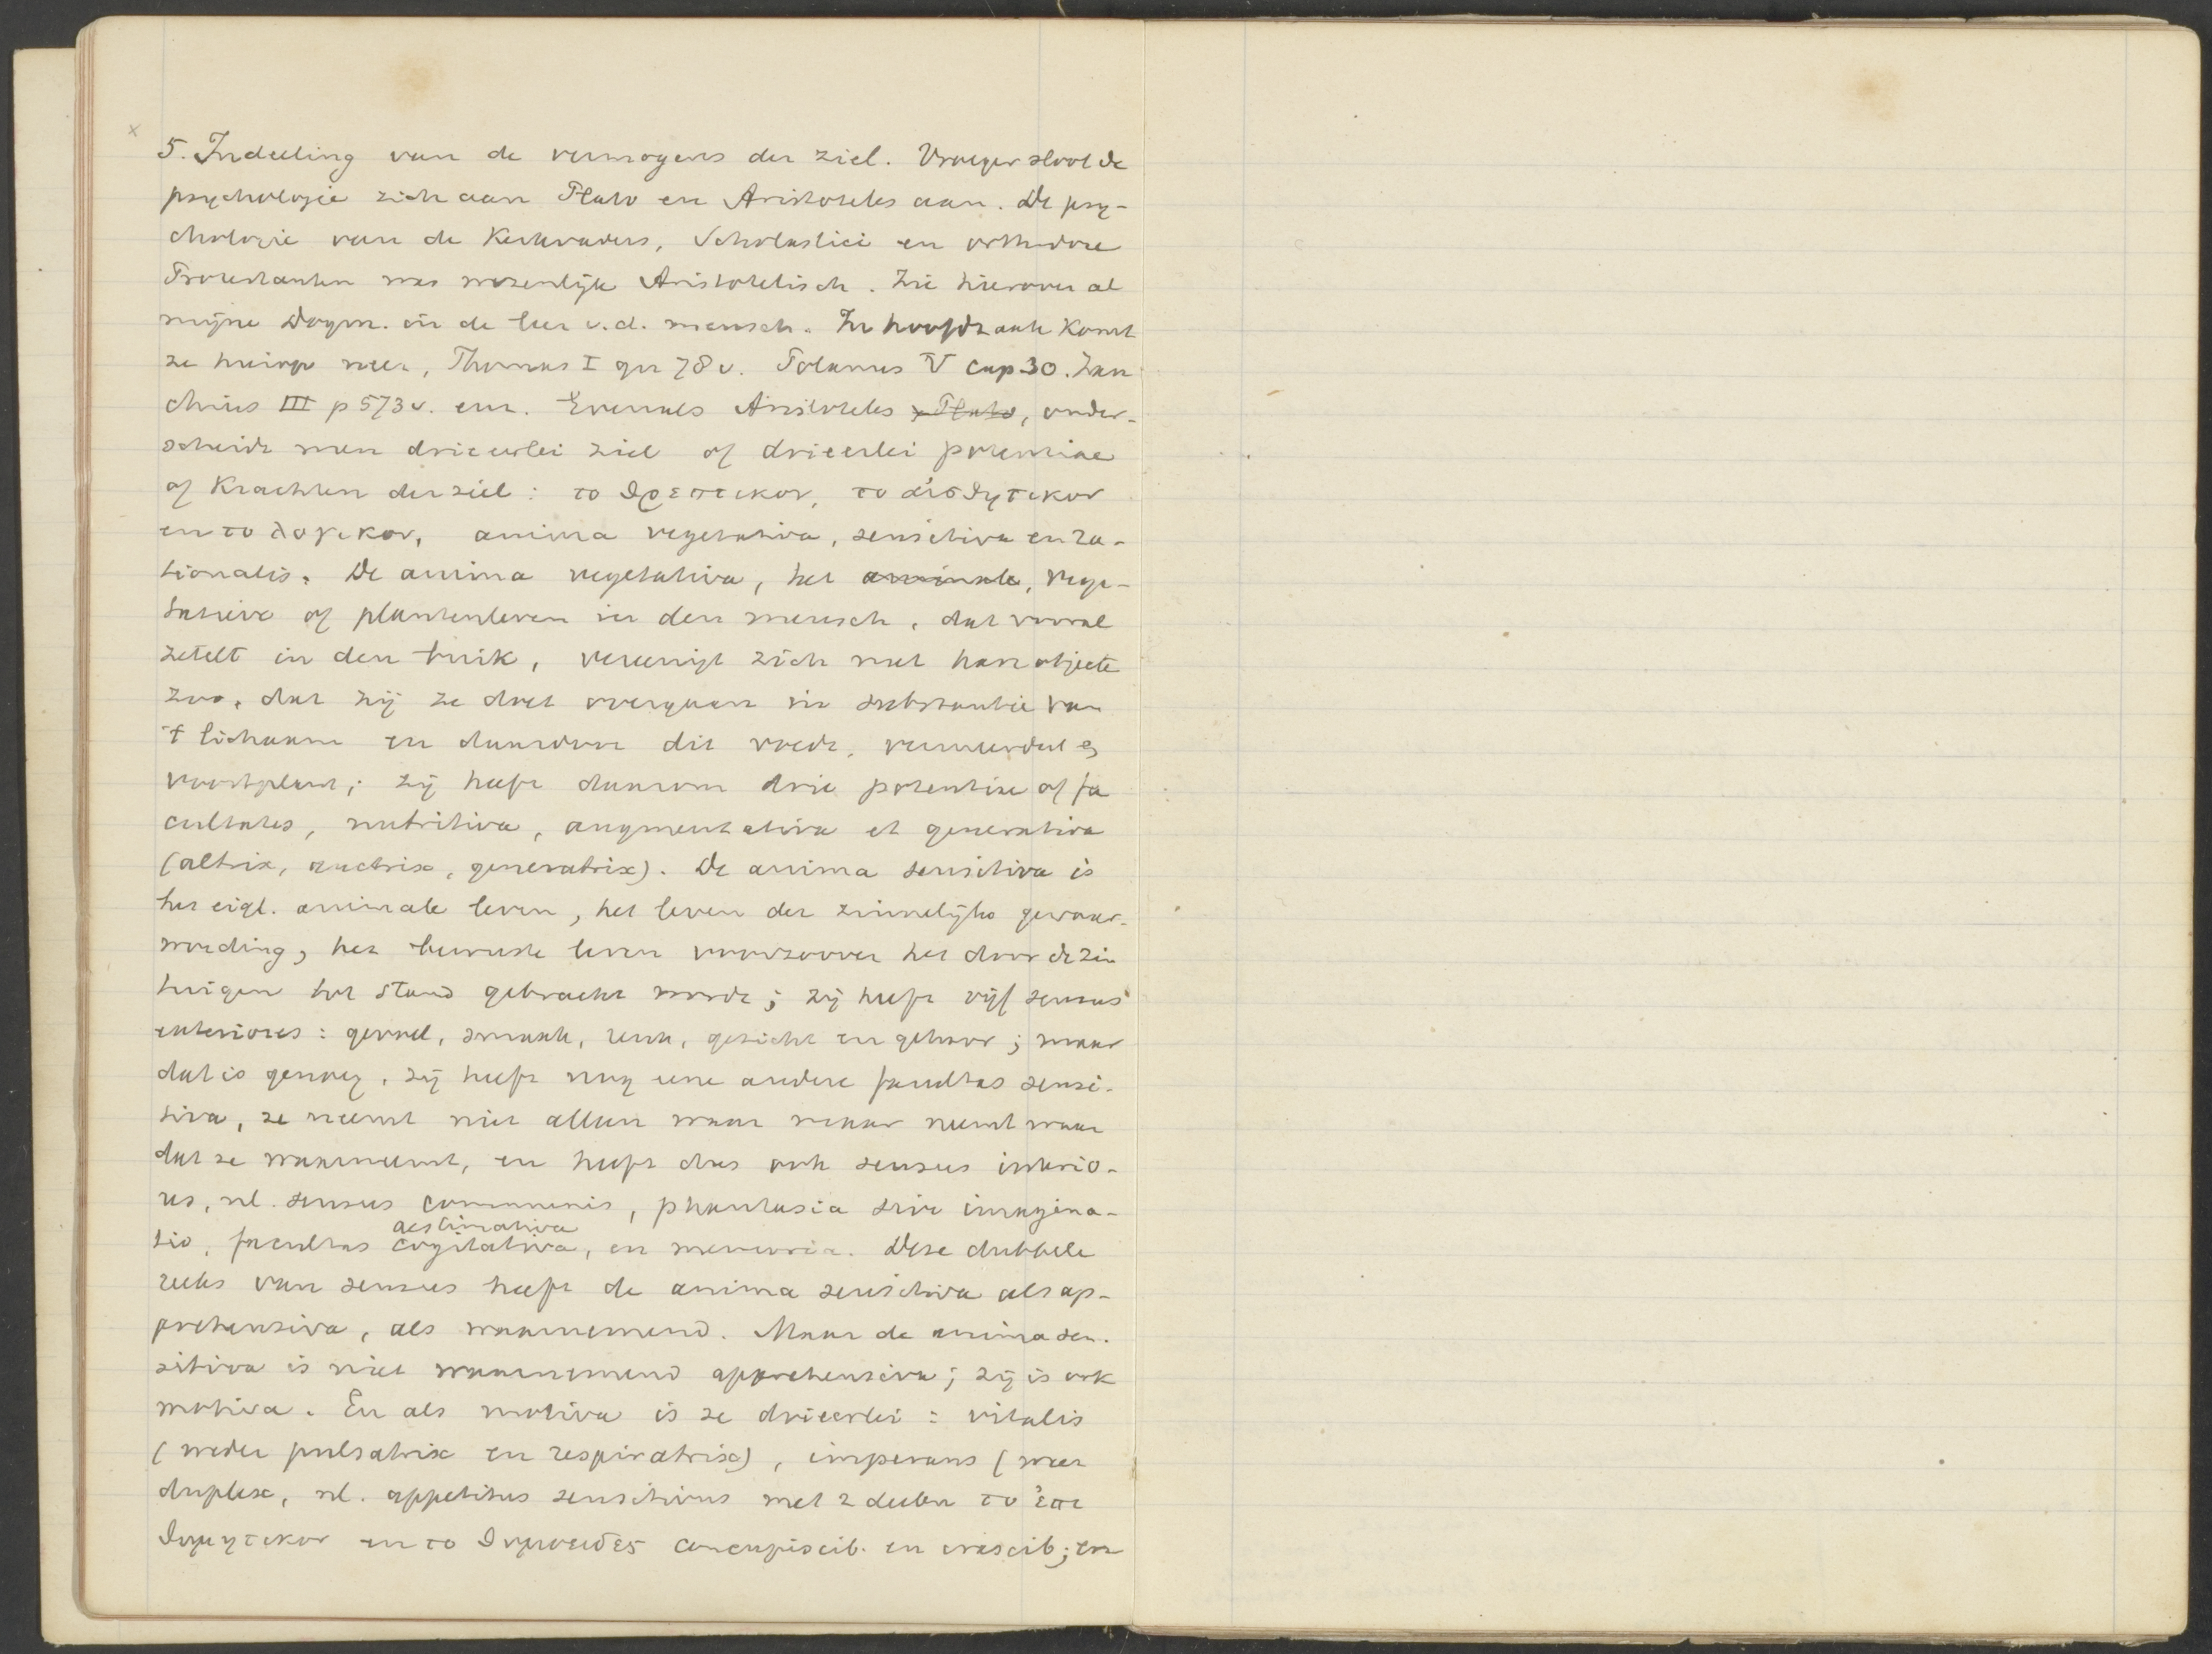 5. Indeeling van de vermogens der ziel. Vroeger sloot de
psychologie zich aan Plato en Aristoteles aan. De psy-
chologie van de Kerkvaders, Scholastici en orthodoxe
Protestanten was wezenlijk Aristotelisch. Zie hierover al
mijne Dogm. in de leer v.d. mensch. In hoofdzaak komt
ze hierop neer, Thomas I qu 78 v. Polanus V cap 30. Zan
chius III p 573 v. enz. Evenals Aristoteles x Plato, onder-
scheidt men drieerlei ziel of drieerlei potentiae
of krachten der ziel: το θρεπτικον, το αἰσθητικον
en το λογικον, anima vegetativa, sensitiva en ra-
tionalis. De anima vegetativa, het animale, vege-
tatieve of plantenleven in den mensch, dat vooral
zetelt in den buik, vereenigt zich met hare objecten
zoo, dat zij ze doet overgaan in substantie van
't lichaam en daardoor dit voedt, vermeerdert en
voortplant; zij heeft daarom drie potentiae of fa
cultates, nutritiva, augmentativa et generativa
(altrix, auctrix, generatrix). De anima sensitiva is
het eigl. animale leven, het leven der zinnelijke gewaar-
wording, het bewuste leven voorzoover het door de zin
tuigen tot stand gebracht wordt; zij heeft vijf sensus
exteriores: gevoel, smaak, reuk, gezicht en gehoor; maar
dat is genoeg, zij heeft nog eene andere facultas sensi-
tiva, ze neemt niet alleen waar maar neemt waar
dat ze waarneemt, en heeft dus ook sensus interio-
res, nl. sensus communis, phantasia sive imagina-
tio, facultas aestimativa cogitativa, en memoria. Deze dubbele
reeks van sensus heeft de anima sensitiva als ap-
prehensiva, als waarnemend. Maar de anima sen-
sitiva is niet waarnemend apprehensiva; zij is ook
motiva. En als motiva is ze drieerlei: vitalis
(weder pulsatrix en respiratrix), imperans (weer
duplex, nl. appetitus sensitivus met 2 deelen το ἐπι
θυμητικον en το θυμοειδες concupiscib. en irascib; en